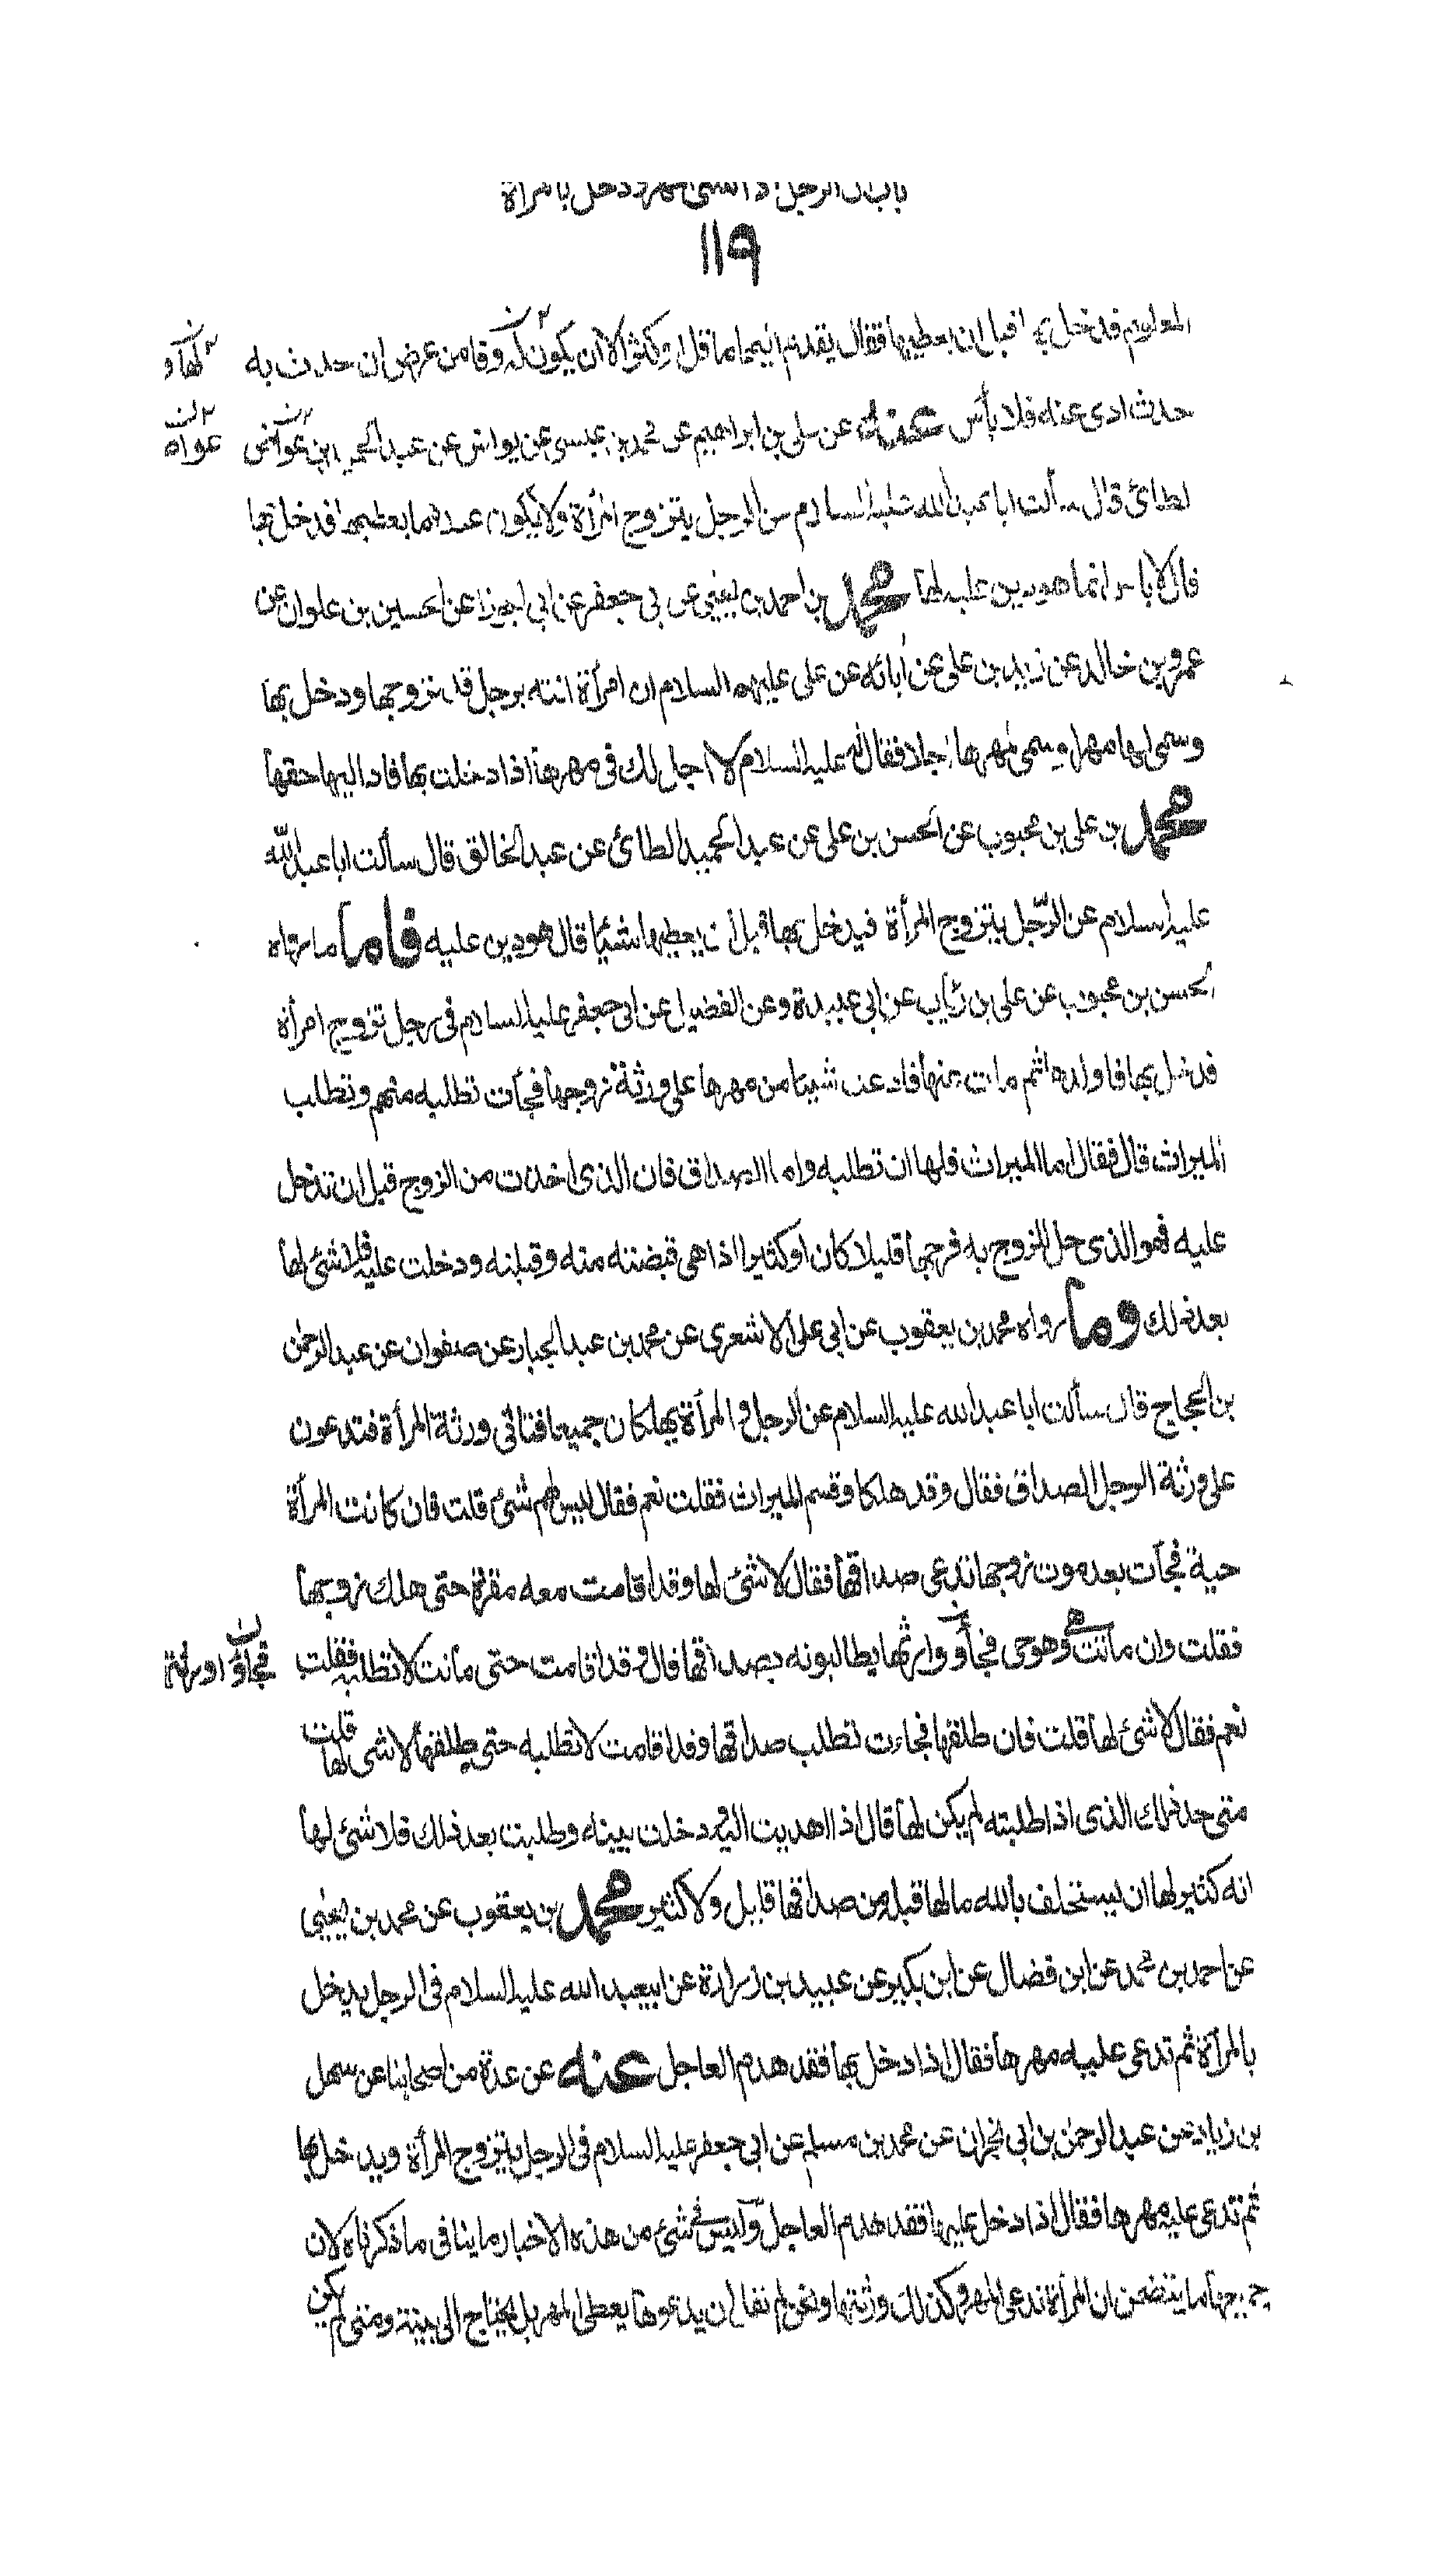 باب ان الرجل اذا سمى مهرا ودخل بامرأة
١١٩
المعلوم فدخل بها قبل ان يعطيها فقال يقدم اليها ما قل او كثر الا ان يكون له وفا من عرض ان حدث به
حدث ادى عنه فلا بأس عنه عن علي بن ابراهيم عن محمد بن عيسى عن يونس عن عبد الحميد بن عواض
لطائ قال سألت ابا عبد الله عليه السلام عن الرجل يتزوج امرأة ولا يكون عنده ما يعطيها فدخل بها
قال لا باس انما هو دين عليه لها محمد بن احمد بن يحيى عن ابي جعفر عن ابي الجوزا عن الحسين بن علوان عن
عمرو بن خالد عن زيد بن علي عن أبائه عن علي عليهم السلام ان امرأة اتته برجل قد تزوجها ودخل بها
وسمى لها مهرا وسمى لمهرها اجلا فقال له عليه السلام لا اجل لك في مهرها اذا دخلت بها فاد اليها حقها
محمد بن علي بن محبوب عن الحسن بن علي عن عبد الحميد الطائ عن عبد الخالق قال سألت ابا عبد الله
عليه السلام عن الرجل يتزوج المرأة فيدخل بها قبل ان يعطيها شيئا قال هو دين عليه فاما ما رواه
الحسن بن محبوب عن علي بن رئاب عن ابي عبيدة وعن الفضيل عن ابي جعفر عليه السلام في رجل تزوج امرأة
فدخل بها فاولدها ثم مات عنها فادعت شيئا من مهرها على ورثة زوجها فجآت تطلبه منهم وتطلب
الميراث قال فقال اما الميراث فلها ان تطلبه واما الصداق فان الذي اخذت من الزوج قبل ان تدخل
عليه فهو الذي حل للزوج به فرجها قليلا كان او كثيرا اذا هي قبضته منه وقبلته ودخلت عليه فلا شئ لها
بعد ذلك وما رواه محمد بن يعقوب عن ابي علي الاشعري عن محمد بن عبد الجبار عن صفوان عن عبد الرحمن
بن الحجاج قال سألت ابا عبد الله عليه السلام عن الرجل و المرأة يهلكان جميعا فتاتي ورثة المرأة فتدعون
على ورثة الرجل الصداق فقال وقد هلكا وقسم الميراث فقلت نعم فقال ليس لهم شئ قلت فان كانت المرأة
حية فجآت بعد موت زوجها تدعى صداقها فقال لا شئ لها وقد اقامت معه مقرة حتى هلك زوجها
فقلت وان ماتت وهو حي فجاؤ وارثها يطالبونه بصداقها قال وقد اقامت حتى ماتت لا تطلبه فقلت
نعم فقال لا شئ لها قلت فان طلقها فجاءت تطلب صداقها وقد اقامت لا تطلبه حتى طلقها لا شئ لها قلت
متى حد ذلك الذي اذا طلبته لم يكن لها قال اذا اهديت اليه ودخلت بيته وطلبت بعد ذلك فلا شئ لها
انه كثير لها ان يستحلف بالله ما لها قبله من صداقها قليل ولا كثير محمد بن يعقوب عن محمد بن يحيى
عن احمد بن محمد عن ابن فضال عن ابن بكير عن عبيد بن زرارة عن ابيعبد الله عليه السلام في الرجل يدخل
بالمرأة ثم تدعى عليه مهرها فقال اذا دخل بها فقد هدم العاجل عنه عن عدة من اصحابنا عن سهل
بن زياد عن عبد الرحمن بن ابي نجران عن محمد بن مسلم عن ابي جعفر عليه السلام في الرجل يتزوج المرأة ويدخل بها
ثم تدعى عليه مهرها فقال اذا دخل عليها فقد هدم العاجل وليس في شئ من هذه الاخبار ما ينافي ما ذكرناه لان
جميعها ما يتضمن ان المرأة تدعى المهر وكذلك ورثتها ونحن لم نقل ان بدعوها يعطى المهر بل يحتاج الى بينة ومتى لم يكن